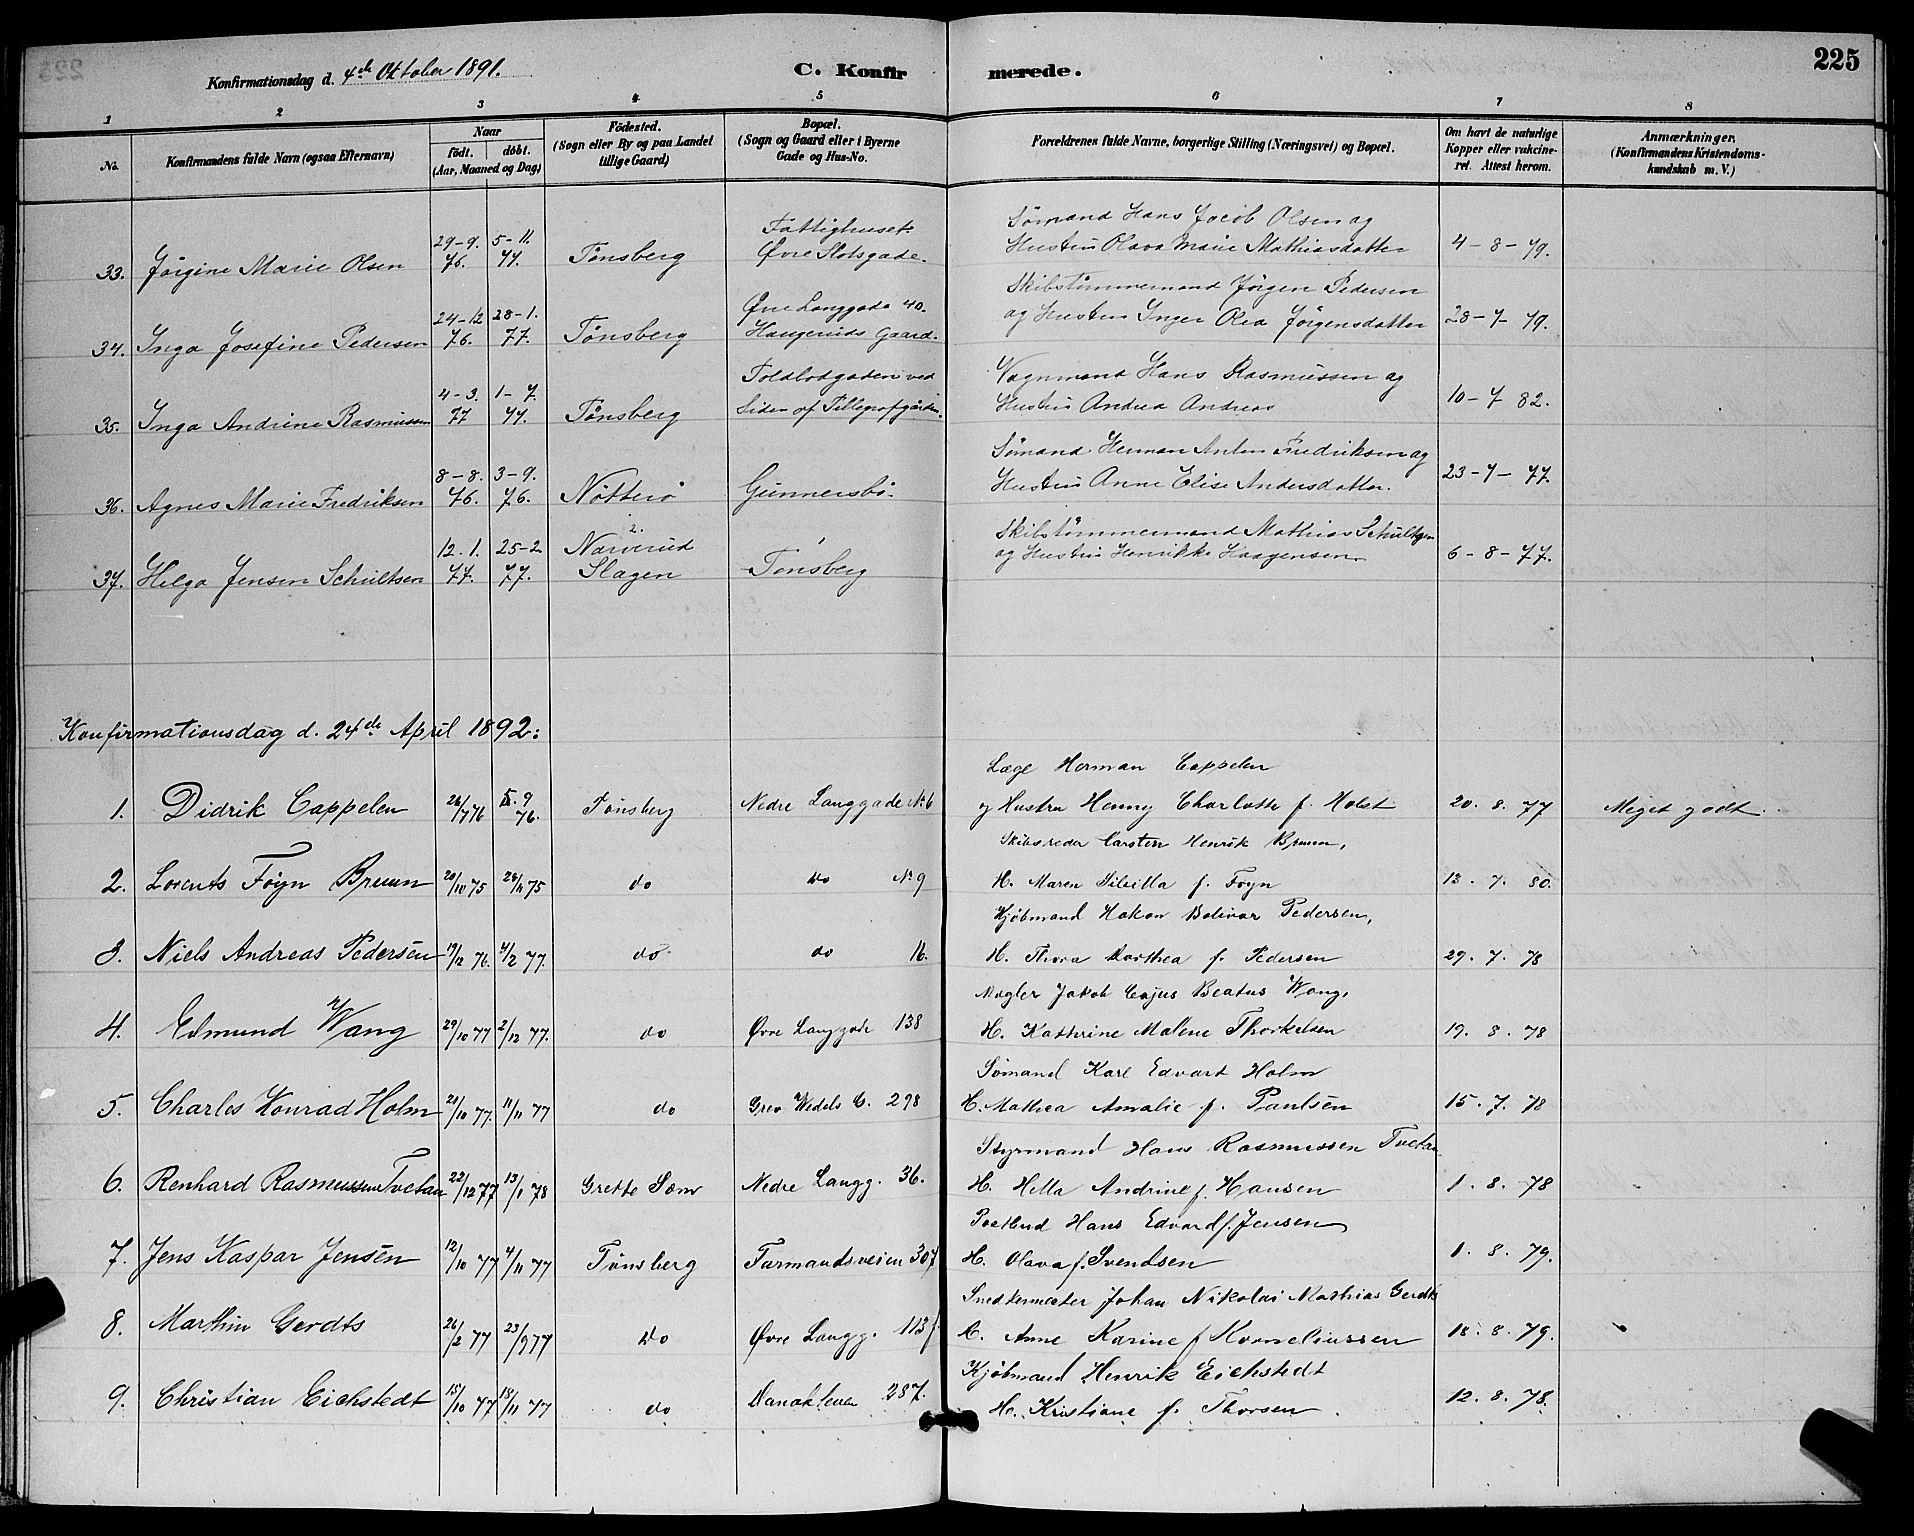 225
Konfirmationsdag d. 4de Oktober 1891.
C. Konfirmerede.
1 2 3 4 5 6 7 8
No.
Konfirmandens fulde Navn (ogsaa Efternavn)
Naar
født. døbt.
(Aar, Maaned og Dag)
Fødested.
(Sogn eller By og paa Landet
tillige Gaard)
Bopæl.
(Sogn og Gaard eller i Byerne
Gade og Hus-No.
Forældrenes fulde Navne, borgerlige Stilling (Næringsvei) og Bopæl.
Om havt de naturlige
Kopper eller vakcine-
ret. Attest herom.
Anmærkninger,
(Konfirmandens Kristendoms-
kundskab m. V.)
29-9. 5-11. Fattighuset Sømand Hans Jacob Olsen og
33. Jörgine Marie Olsen 76. 77. Tønsberg Øvre Slotsgade. Hustru Olava Marie Mathiasdatter 4-8-79.
24-12 28-1. Øvre Langgade 40. Skibstømmermand Jörgen Pedersen
34. Inga Josefine Pedersen 76. 77. Tønsberg Haugeruds Gaard. og Hustru Inger Olea Jörgensdatter 28-7-79.
4-3. 1-7. Toldbodgaden ved Vognmand Hans Rasmussen og
35. Inga Andrine Rasmussen 77 77. Tønsberg Siden af Tellegrafgården. Hustru Andrea Andreas 10-7 82.
8-8. 3-9. Sømand Herman Anton Fredriksen og
36. Agnes Marie Fredriksen 76. 76. Nötterö Gunnersbö. Hustru Anne Elise Andersdatter. 23-7-77.
12.1. 25-2 Narverud Skibstømmermand Mathias Schultsen
37. Helga Jensen Schultsen 77. 77. Slagen Tønsberg og Hustru Henrikke Haagensen 6-8-77.
Konfirmationsdag d. 24de April 1892:
Læge Herman Cappelen
1. Didrik Cappelen 26/7 76 5.9 76. Tønsberg Nedre Langgade No 6 og Hustru Henny Charlotte f. Holst 20. 8. 77 Meget godt.
Skibsreder Carsten Henrik Bruun,
2. Lorents Föyn Bruun 20/10 75 28/11 75 do do No 9 H. Maren Silvilla f. Foyn 13. 7. 80.
Kjöbmand Hakon Bolivar Pedersen,
3. Niels Andreas Pedersen 19/12 76. 4/2 77. do do 16. H. Thora Dorthea f. Pedersen 29. 7. 78
Mægler Jakob Cajus Beatus Wang,
4. Edmund Wang 29/10 77 2/12 77. do Øvre Langgade 138 H. Kathrine Malene Thorkelsen 19. 8. 78
Sømand Karl Edvart Holm
5. Charles Konrad Holm 20/10 77. 11/11 77 do Grev Wedels G. 298 H. Mathea Amalie f. Paulsen 15. 7. 78
Styrmand Hans Rasmussen Tvetan
6. Renhard Rasmussen Tvetan 22/12 77 13/1 78 Grette Sem Nedre Langg. 36. H. Hella Andrine f. Hansen 1. 8. 78
Postbud Hans Edvard f. Jensen
7. Jens Kaspar Jensen 12/10 77 4/11 77 Tønsberg Farmandsveien 307 H. Olava f. Svendsen 1. 8. 79.
Snedkermester Johan Nikolai Mathias Gerdts
8. Marthin Gerdts 26/2 77 23/9 77 do Øvre Langg. 113 f. H. Anne Karine f Korneliussen 18. 8. 79.
Kjøbmand Henrik Eichstedt
9. Christian Eichstedt 15/10 77 18/11 77 do 287. H. Kristiane f. Thorsen 12. 8. 78.